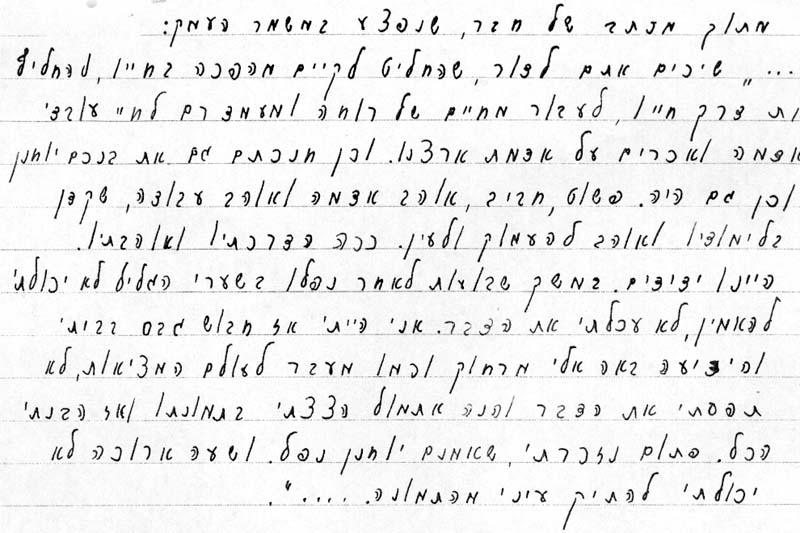 מתוך מכתב של חבר, שנפצע במשמר העמק:
".... שייכים אתם לדור, שהחליט לקיים מהפכה בחייו, להחליף
את דרך חייו, לעבור מחיים של רוחה ומעמד רם לחיי עובדי
אדמה ואכרים על אדמת ארצנו. וכן חנכתם גם את בנכם יוחנן
וכן גם היה. פשוט, חביב, אוהב אדמה ואוהב עבודה, שקדן
בלימודיו ואוהב להעמיק ולעיין. ככה הדרכתיו ואהבתיו.
היינו ידידים. במשך שבועות לאחר נפלו בשערי הגליל לא יכולתי
להאמין, לא עכלתי את הדבר. אני הייתי אז חבוש גבס בביתי
והידיעה באה אלי מרחוק וכמו מעבר לעולם המציאות, לא
תפסתי את הדבר והנה אתמול הצצתי בתמונתו ואז הבנתי
הכל. פתאום נזכרתי, שאמנם יוחנן נפל. ושעה ארוכה לא
יכולתי להתיק עיני מהתמונה. ....".